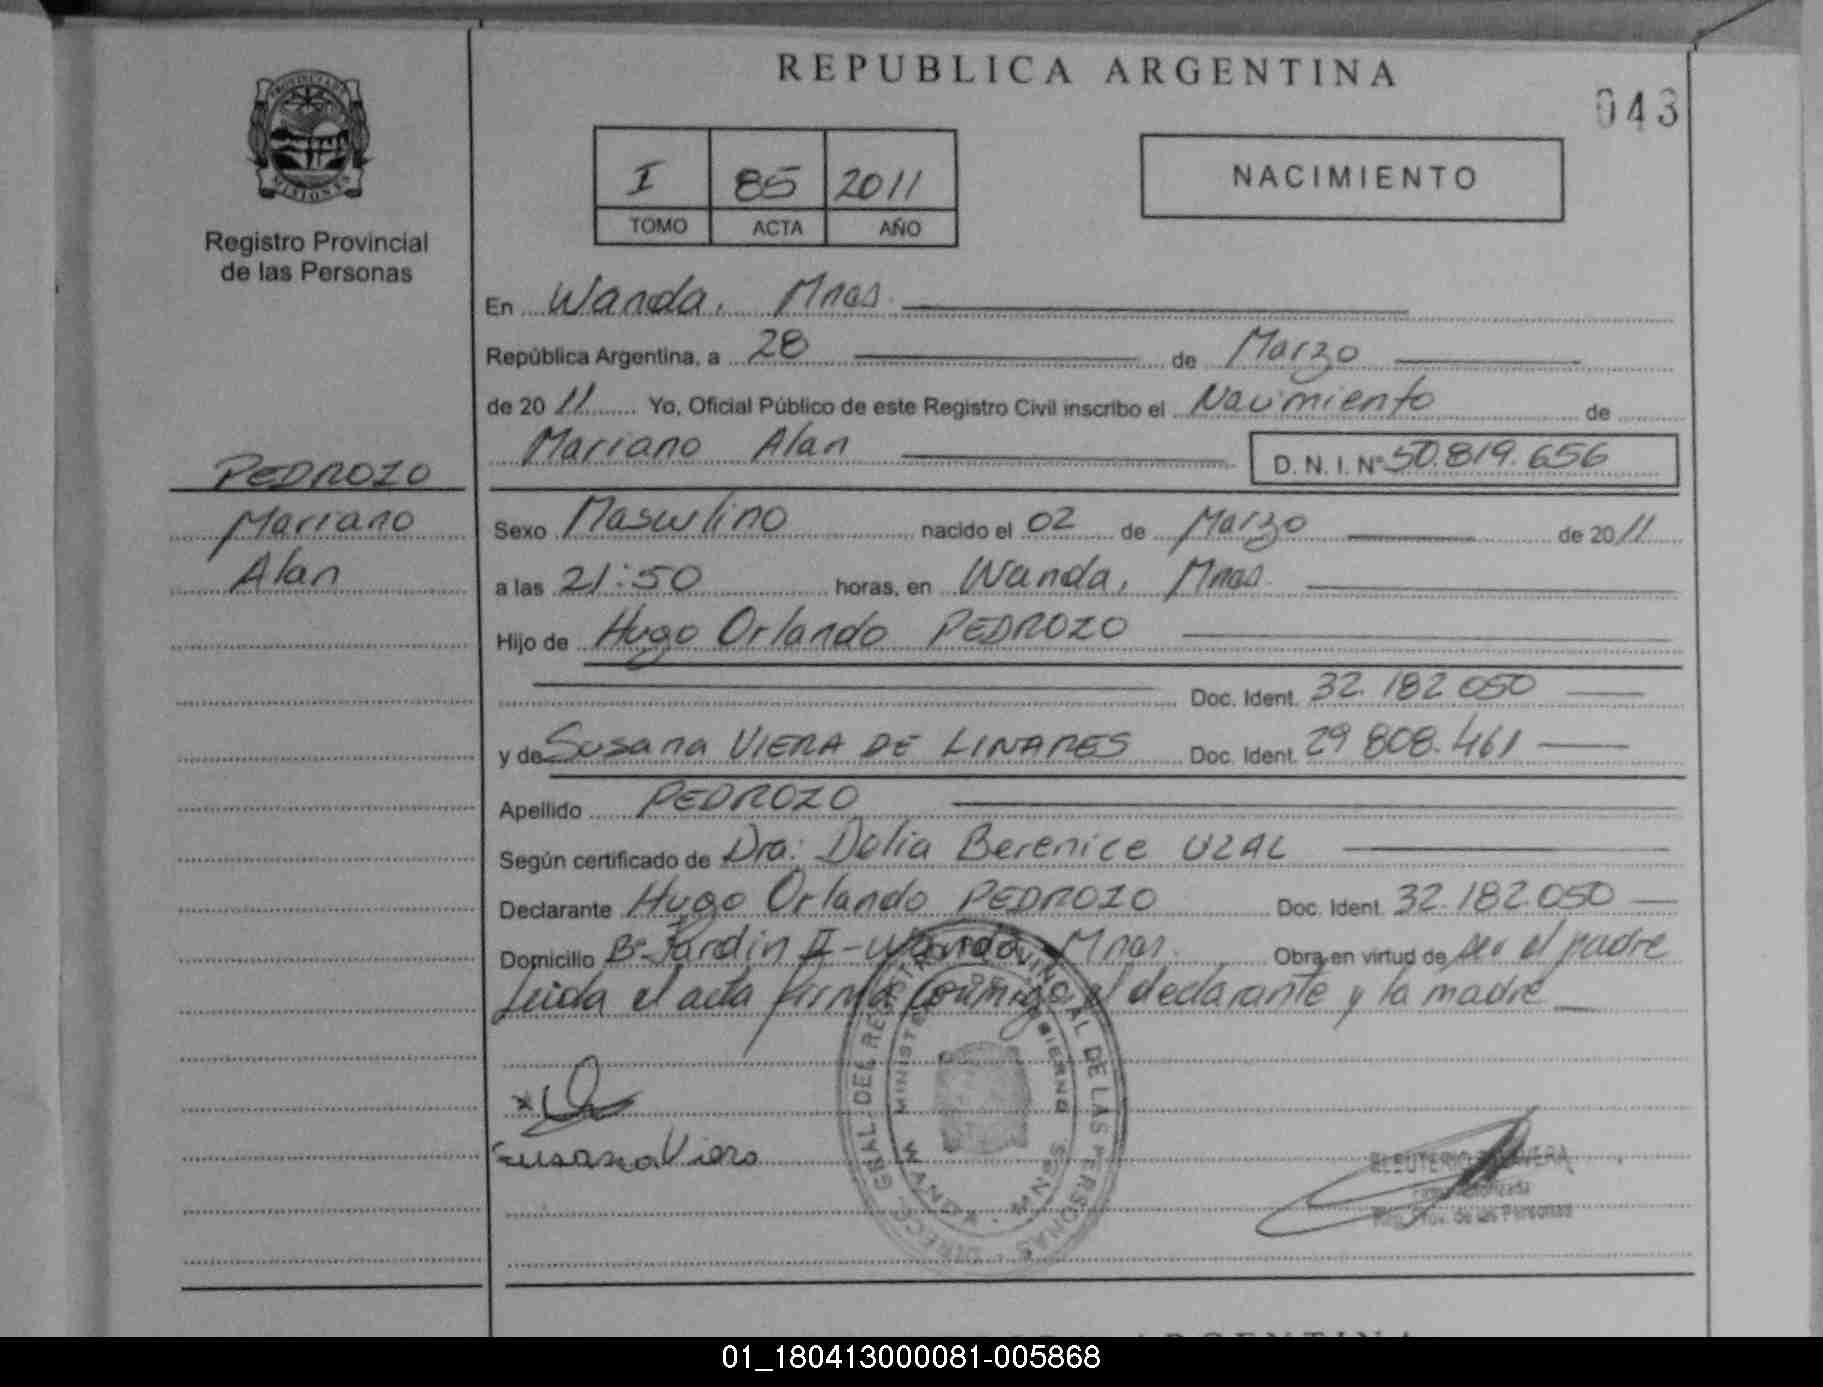 REPUBLICA ARGENTINA
043
PROVINCIA DE
MISIONES
Registro Provincial
de las Personas
I 85 2011
TOMO ACTA AÑO
NACIMIENTO
En Wanda, Mnes.
República Argentina, a 28 de Marzo
de 2011 Yo, Oficial Público de este Registro Civil inscribo el Nacimiento de
Mariano Alan D. N. I. Nº 50.819.656
PEDROZO
Mariano
Alan
Sexo Masculino nacido el 02 de Marzo de 2011
a las 21:50 horas, en Wanda, Mnes.
Hijo de Hugo Orlando PEDROZO
Doc. Ident. 32.182.050
y de Susana VIERA DE LINARES Doc. Ident. 29.808.461
Apellido PEDROZO
Según certificado de Dra: Delia Berenice UZAL
Declarante Hugo Orlando PEDROZO Doc. Ident. 32.182.050
Domicilio Bº Jardin II - Wanda, Mnes. Obra en virtud de ser el padre
Leida el acta firma conmigo el declarante y la madre
Susana Viera
DIRECC. GRAL. DEL REGISTRO PROVINCIAL DE LAS PERSONAS
MINISTERIO DE GOBIERNO
WANDA
Firma Autorizada
Reg. Prov. de las Personas
ARGENTINA
01_180413000081-005868